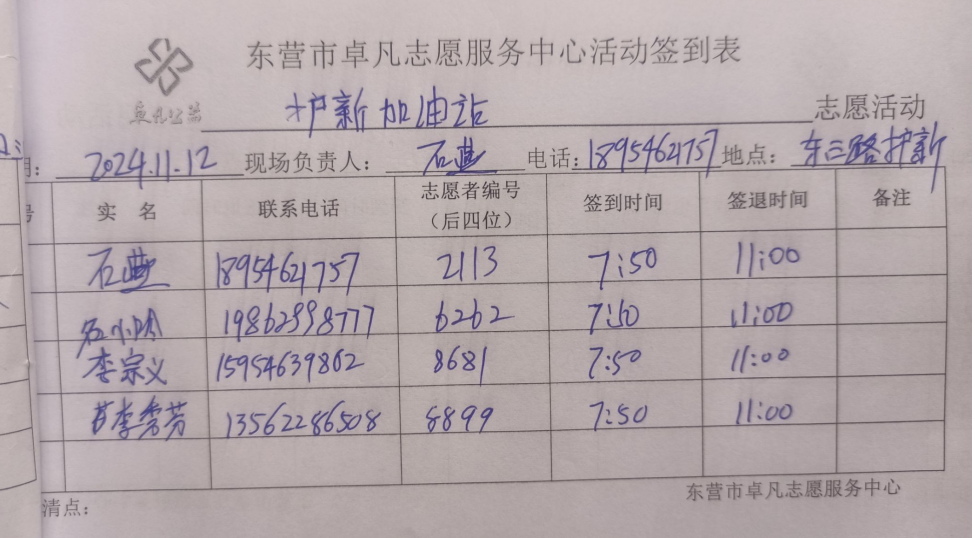 东营市卓凡志愿服务中心活动签到表
卓凡公益 护新加油站 志愿活动
期: 2024.11.12 现场负责人: 石燕 电话: 18954621757 地点: 东三路护新
号 实 名 联系电话 志愿者编号（后四位） 签到时间 签退时间 备注
石燕 18954621757 2113 7:50 11:00
19862998777 6262 7:50 11:00
李宗义 15954639802 8681 7:50 11:00
李秀芳 13562286508 8899 7:50 11:00
清点:
东营市卓凡志愿服务中心